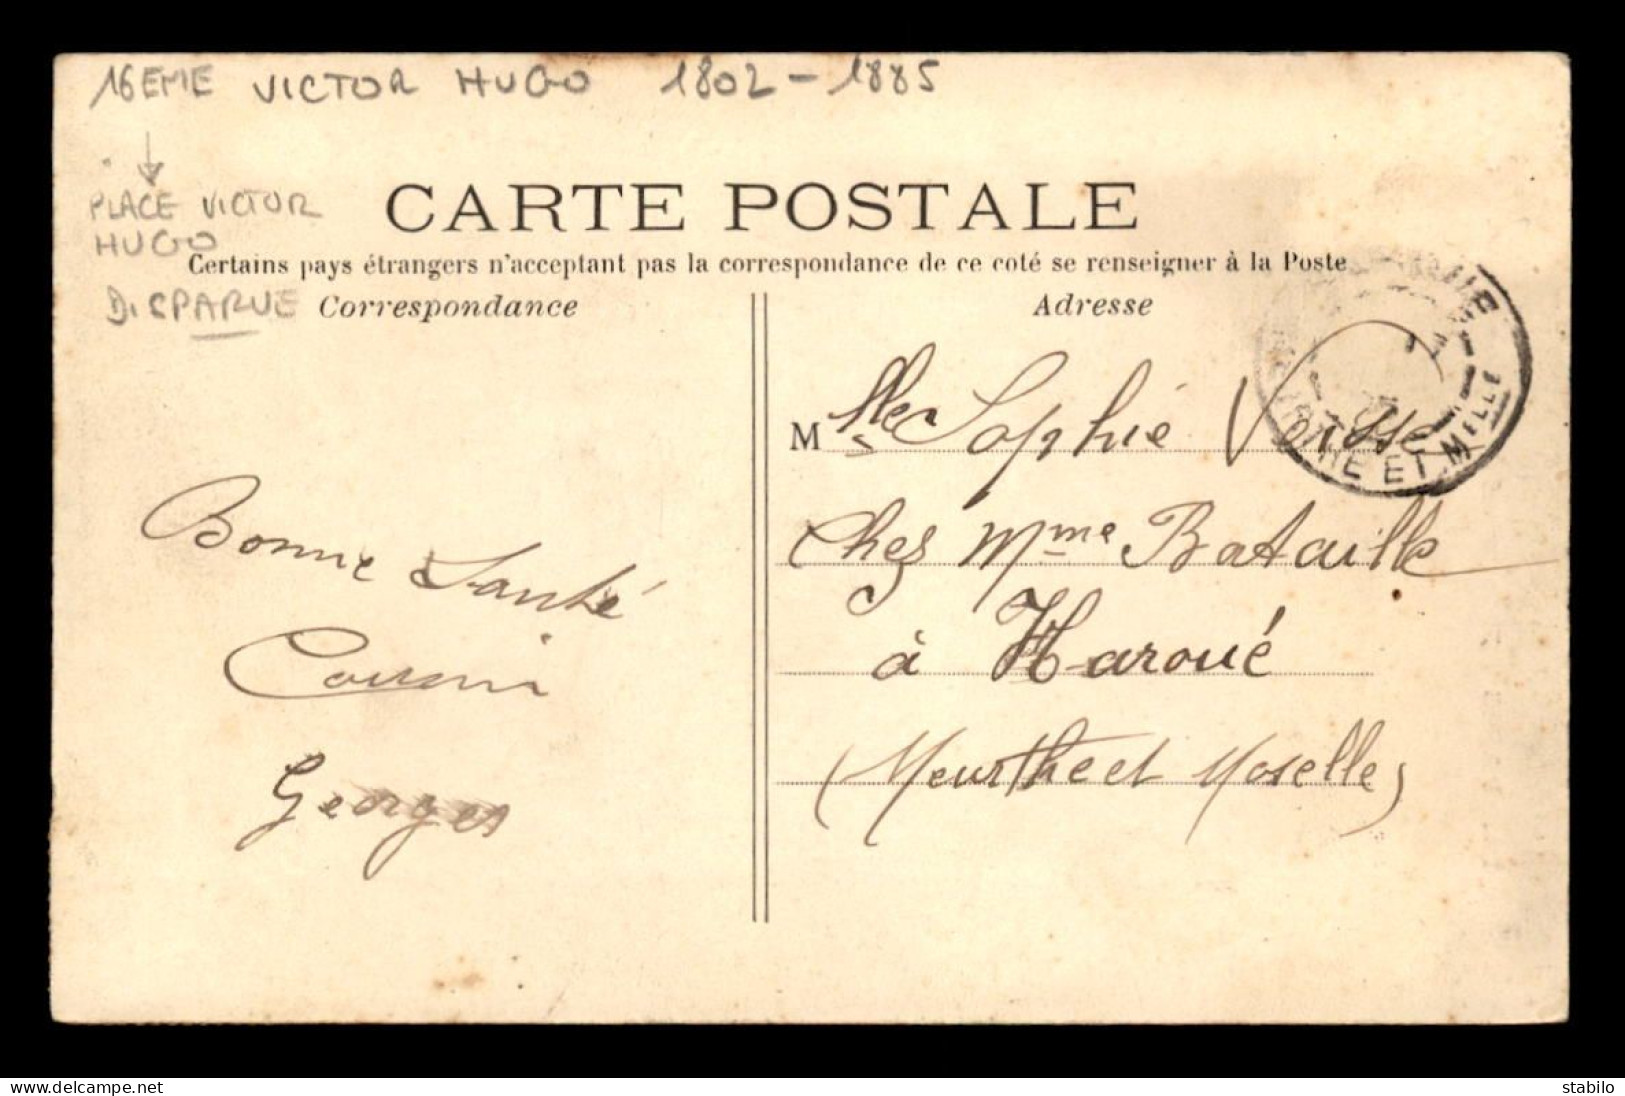 16EME VICTOR HUGO 1802-1885
PLACE VICTOR
HUGO
DISPARUE
CARTE POSTALE
Certains pays étrangers n'acceptant pas la correspondance de ce coté se renseigner à la Poste
Correspondance
Adresse
Bonne Santé
Cousin
Georges
Mlle Sophie
Chez Mme Bataille
à Haroué
(Meurthe et Moselle)
ET MOSELLE
www.delcampe.net
stabilo